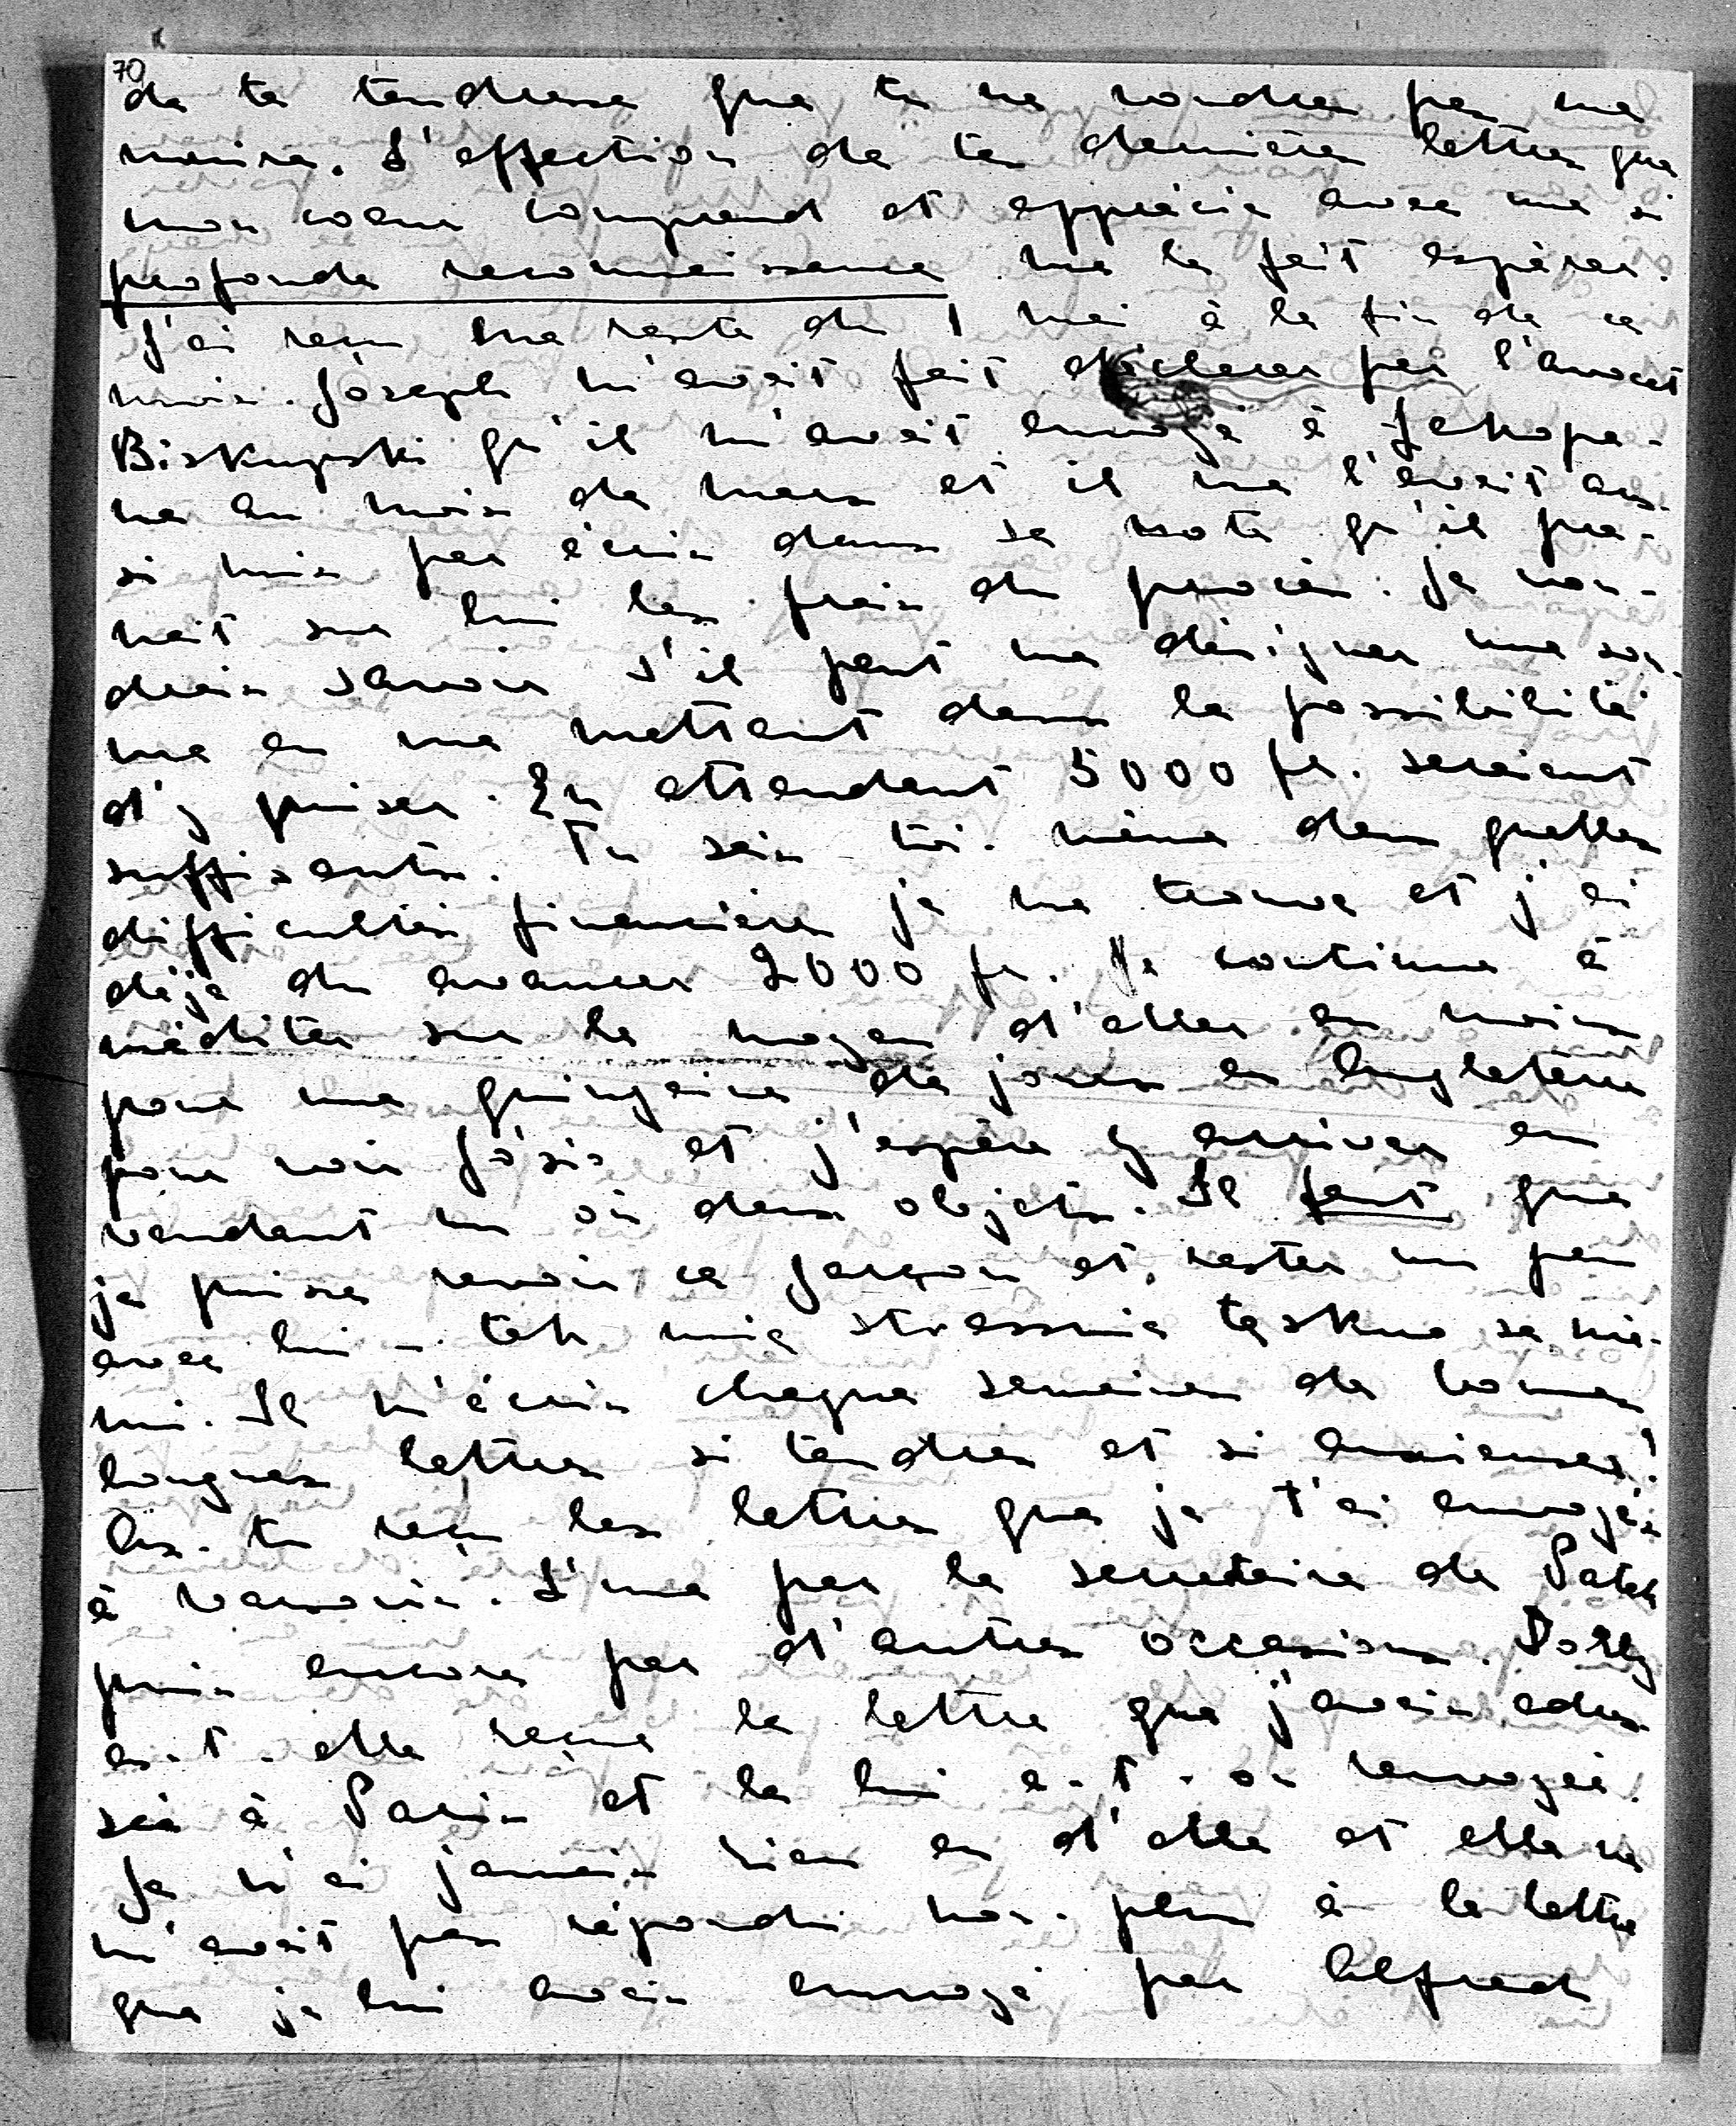 70
de ta tendresse que tu ne voudras pas me
nuire. L'affection de tes dernières lettres que
mon coeur comprend et apprécie avec une si
profonde reconnaissance me le fait espérer.
J'ai reçu ma rente du 1 mai à la fin de ce
mois. Joseph m'avait fait déclarer par l'avocat
Biskupski qu'il m'avait envoyé à Zakopa-
ne au mois de mars et il me l'avait aus-
si mis par écris dans sa note qu'il pre-
nait sur lui les frais du procès. Je vou-
drais savoir s'il peut me désigner une som-
me en me mettant dans la possibilité
d'y puiser. En attendant 5000 fr. seraient
suffisants. Tu sais toi-même dans quelles
difficultés financières je me trouve et j'ai
déjà du avancer 2000 fr. Je continue à
méditer sur le moyen d'aller au moins
pour une quinzaine de jours en Angleterre
pour voir Józio et j'espère y arriver en
vendant un où deux objets. Il faut que
je puisse revoir ce garçon et rester un peu
avec lui – tak mię strasznie tęskno za nie-
mi. Il m'écris chaque semaines de bonnes
longues lettres si tendres et si anxieuses!
As-tu reçu les lettres que je t'ai envoyées
à Varsovie. L'une par la secretaire de Patek
puis encore par d'autres occasions. Dolly
as-t-elle reçue la lettre que j'avais adres-
sée à Paris et la lui a-t-on renvoyée.
Je n'ai jamais rien eu d'elle et elle ne
m'avait pas répondu non-plus à la lettre
que je lui avais envoyé par Alfred